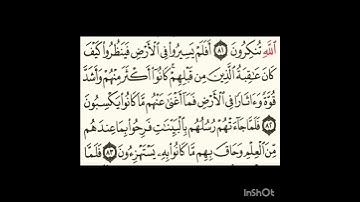 ٱللَّهِ تُنكِرُونَ ٨١ أَفَلَمْ يَسِيرُوا۟ فِى ٱلْأَرْضِ فَيَنظُرُوا۟ كَيْفَ
كَانَ عَـٰقِبَةُ ٱلَّذِينَ مِن قَبْلِهِمْ ۚ كَانُوٓا۟ أَكْثَرَ مِنْهُمْ وَأَشَدَّ
قُوَّةً وَءَاثَارًا فِى ٱلْأَرْضِ فَمَآ أَغْنَىٰ عَنْهُم مَّا كَانُوا۟ يَكْسِبُونَ
٨٢ فَلَمَّا جَآءَتْهُمْ رُسُلُهُم بِٱلْبَيِّنَـٰتِ فَرِحُوا۟ بِمَا عِندَهُم
مِّنَ ٱلْعِلْمِ وَحَاقَ بِهِم مَّا كَانُوا۟ بِهِۦ يَسْتَهْزِءُونَ ٨٣ فَلَمَّا
InShOt